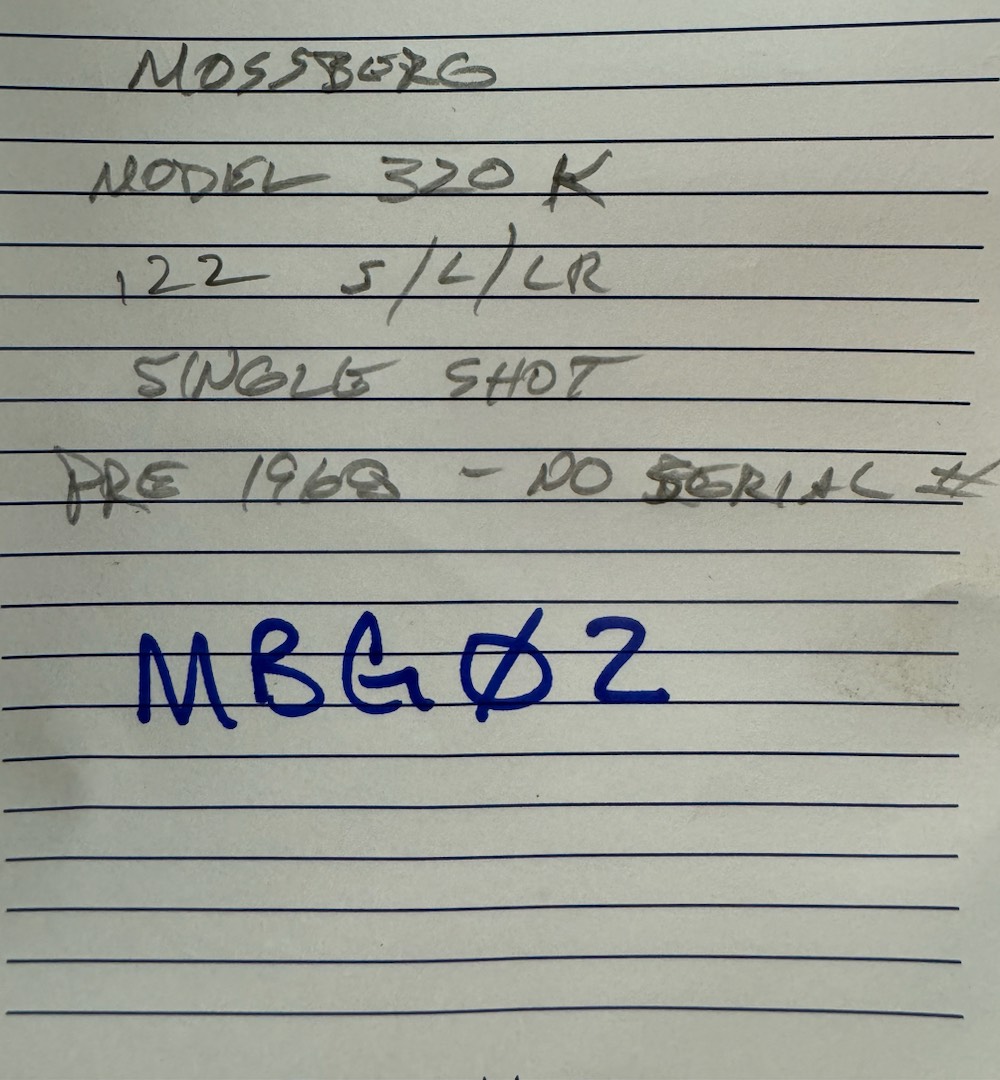 MOSSBERG
MODEL 320 K
.22 S/L/LR
SINGLE SHOT
PRE 1968 - NO SERIAL #
MBGØ2